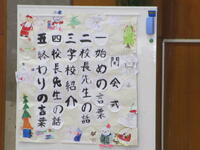 開会式
一 始めの言葉
二 校長先生の話
三 学校紹介
四 校長先生の話
五 終わりの言葉